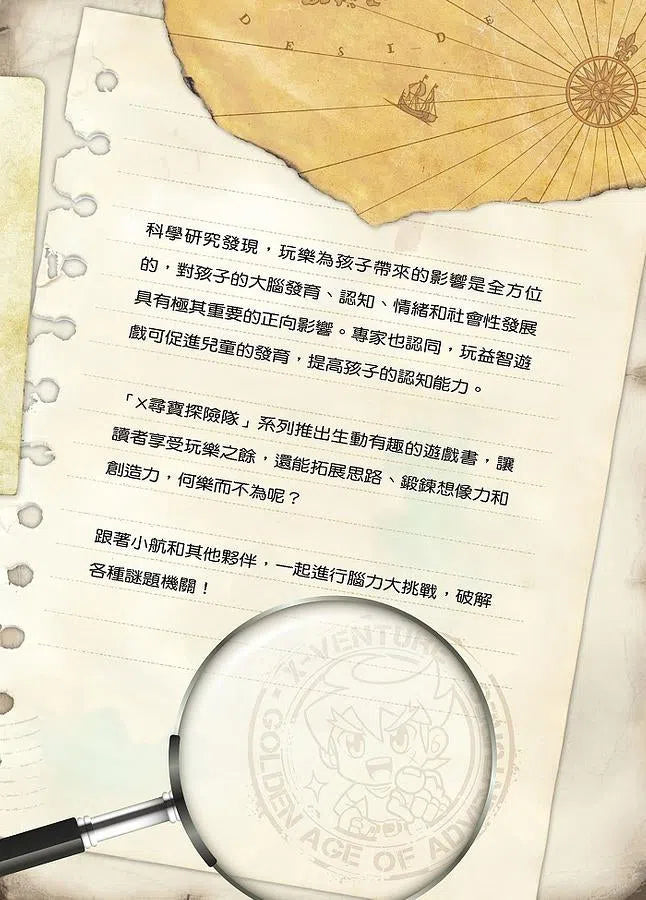 DESIDE
科學研究發現，玩樂為孩子帶來的影響是全方位
的，對孩子的大腦發育、認知、情緒和社會性發展
具有極其重要的正向影響。專家也認同，玩益智遊
戲可促進兒童的發育，提高孩子的認知能力。
「X尋寶探險隊」系列推出生動有趣的遊戲書，讓
讀者享受玩樂之餘，還能拓展思路、鍛鍊想像力和
創造力，何樂而不為呢？
跟著小航和其他夥伴，一起進行腦力大挑戰，破解
各種謎題機關！
X-VENTURE
GOLDEN AGE OF